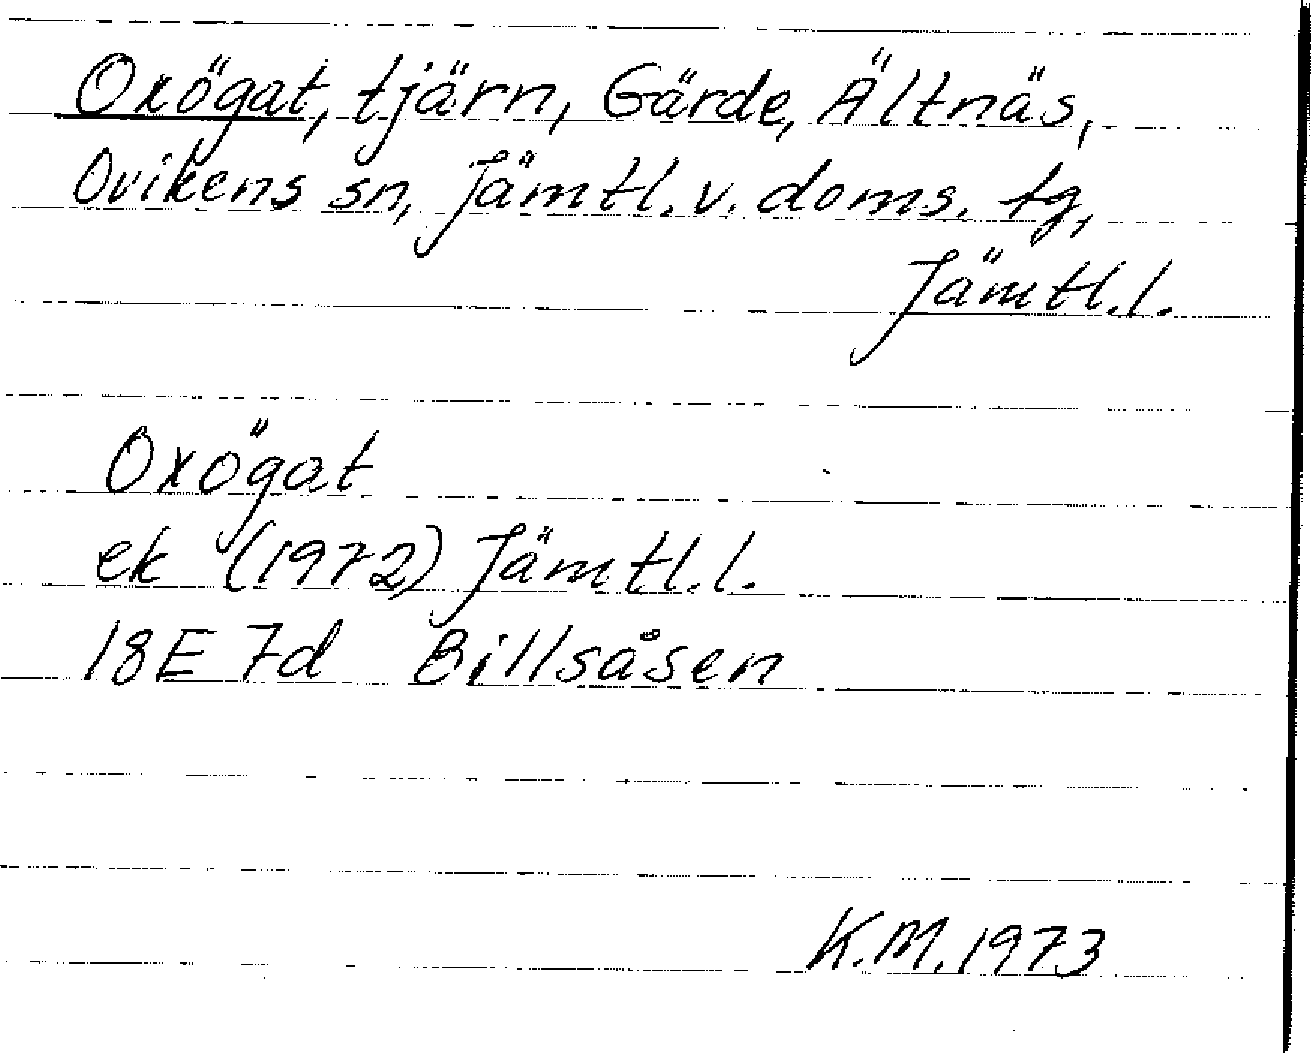 Oxögat, tjärn, Gärde, Ältnäs,
Ovikens sn, Jämtl. v. doms. tg,
Jämtl. l.
Oxögat
ek (1972) Jämtl. l.
18E 7d Billsåsen
K.M. 1973